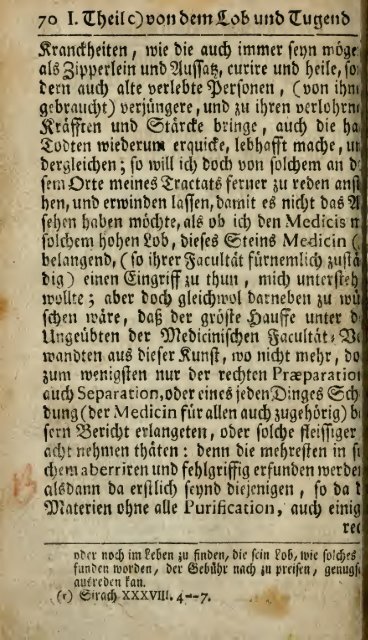 70 I. Theil c) von dem Lob und Tugend
Kranckheiten, wie die auch immer seyn möge
als Zipperlein und Aussatz, curire und heile, so
dern auch alte verlebte Personen, (von ihm
gebraucht) verjüngere, und zu ihren verlohrne
Kräfften und Stärcke bringe, auch die ha
Todten wiederum erquicke, lebhafft mache, un
dergleichen; so will ich doch von solchem an d
sem Orte meines Tractats ferner zu reden anst
hen, und erwinden lassen, damit es nicht das A
sehen haben möchte, als ob ich den Medicis m
solchem hohen Lob, dieses Steins Medicin (
belangend, (so ihrer Facultät fürnemlich zustä
dig) einen Eingriff zu thun, mich untersteh
wollte; aber doch gleichwol darneben zu wü
schen wäre, daß der gröste Hauffe unter d
Ungeübten der Medicinischen Facultät-Ve
wandten aus dieser Kunst, wo nicht mehr, do
zum wenigsten nur der rechten Præparation
auch Separation, oder eines jeden Dinges Sch
dung (der Medicin für allen auch zugehörig) b
sern Bericht erlangeten, oder solche fleissiger
acht nehmen thäten: denn die mehresten in s
chem aberriren und fehlgriffig erfunden werde
alsdann da erstlich seynd diejenigen, so da
Materien ohne alle Purification, auch einig
rec
oder noch im Leben zu finden, die sein Lob, wie solches
funden worden, der Gebühr nach zu preisen, genugs
aufreden kan.
(r) Sirach XXXVIII. 4--7.